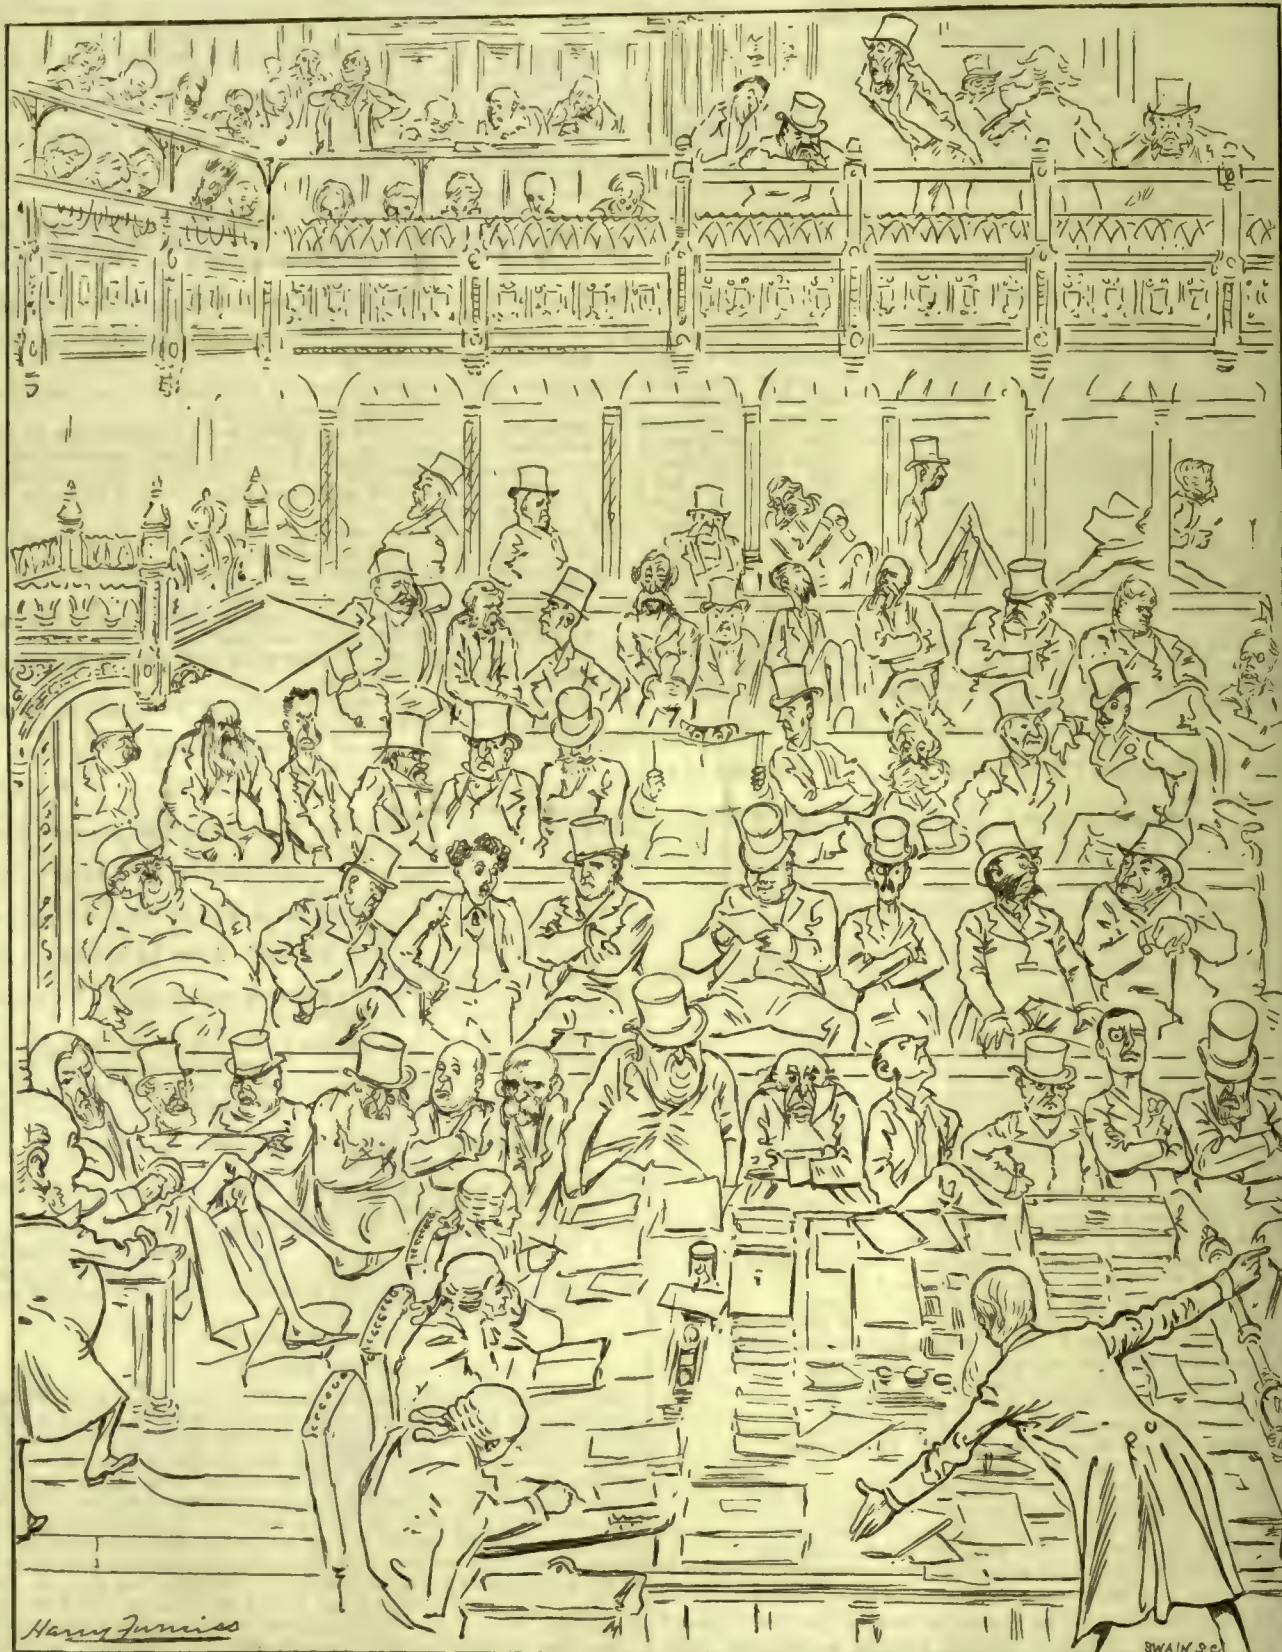 Harry Furniss
SWAIN SC